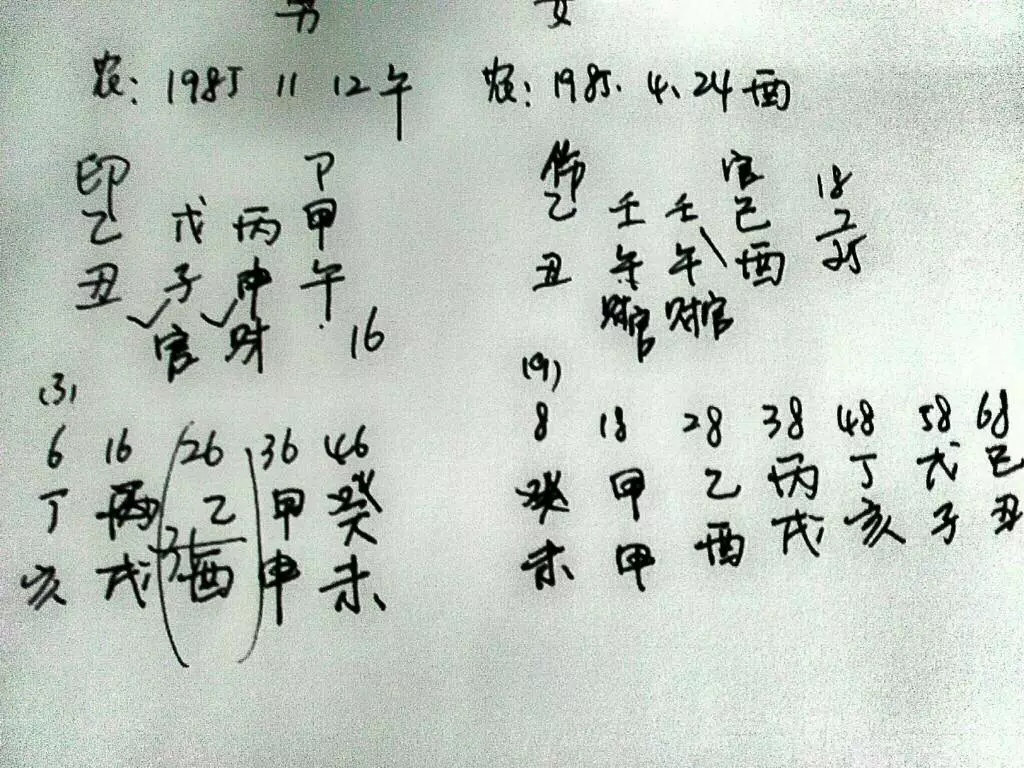 男 女
农：1985 11 12午 农：1985.4.24酉
印 P 伤 官
乙 戊 丙 甲 乙 壬 壬 己 18
丑 子 申 午 丑 午 午 酉 25
官 财 16 财官 财官
(3) (9)
6 16 26 36 46 8 18 28 38 48 58 68
丁 丙 乙 甲 癸 癸 甲 乙 丙 丁 戊 己
亥 戌 酉 申 未 未 甲 酉 戌 亥 子 丑